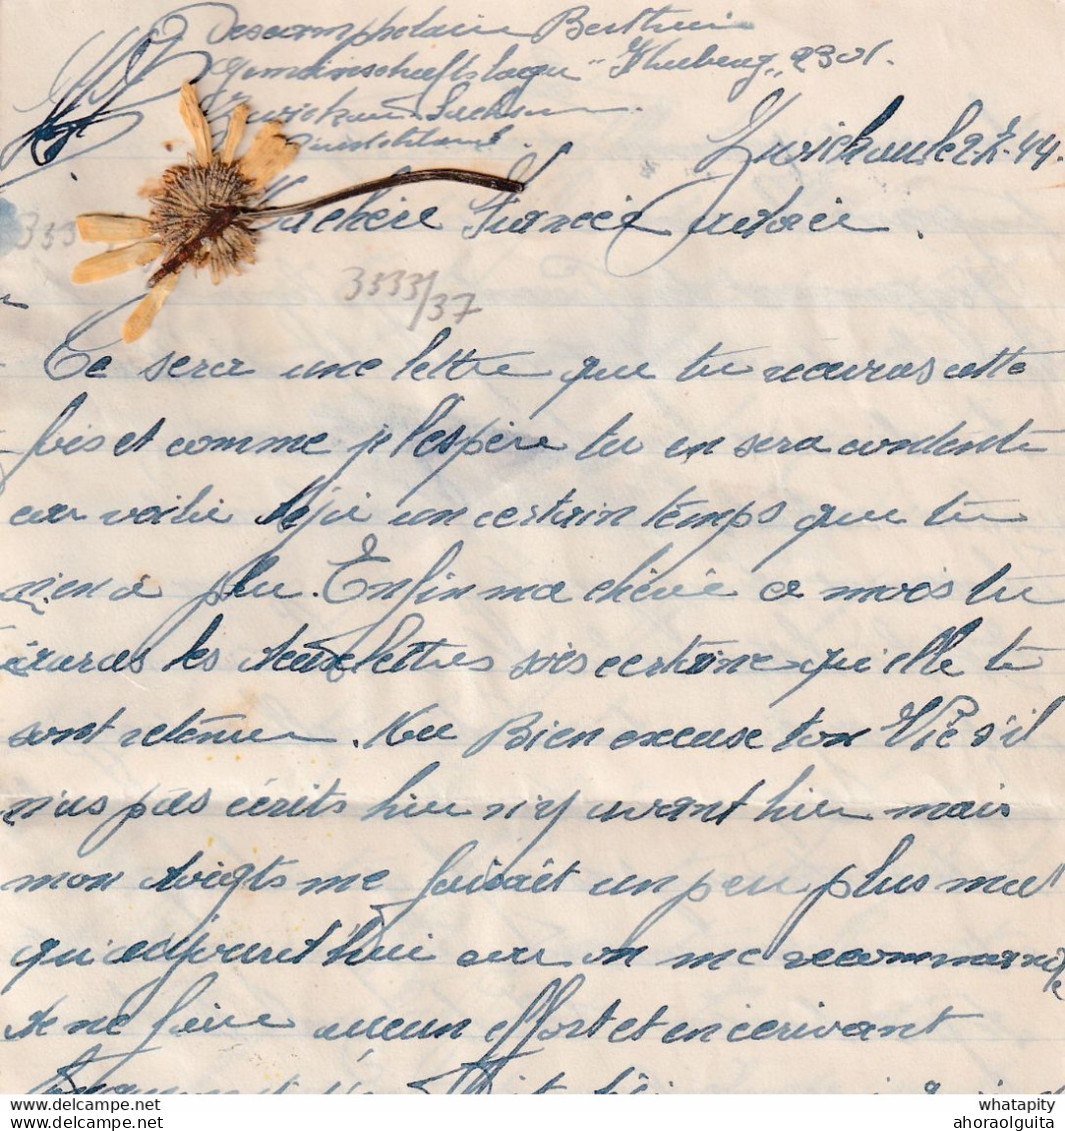 Descampelaire Berthin
Gemeinschaftslager "

Zwickau Sachsen
Deutschland
Zwickau le 2
44.
Ma chère Fiancée
333
3533/37
Ce sera une lettre que tu recevras cette
fois et comme je l'espère tu en sera contente
car voilie déjà un certain temps que tu
n'en a plu. Enfin ma chérie ce mois tu
auras les deux lettres sois certaine qu'elle te
sont retenue. Bien excuse ton s'il
n'as pas écrits hier n'y avant hier mais
mon doigts me faisait un peu plus mal
qu'adjourd'hui car on me recommande
de ne faire aucun effort et en écrivant
whatapity
ahoraolguita
www.delcampe.net